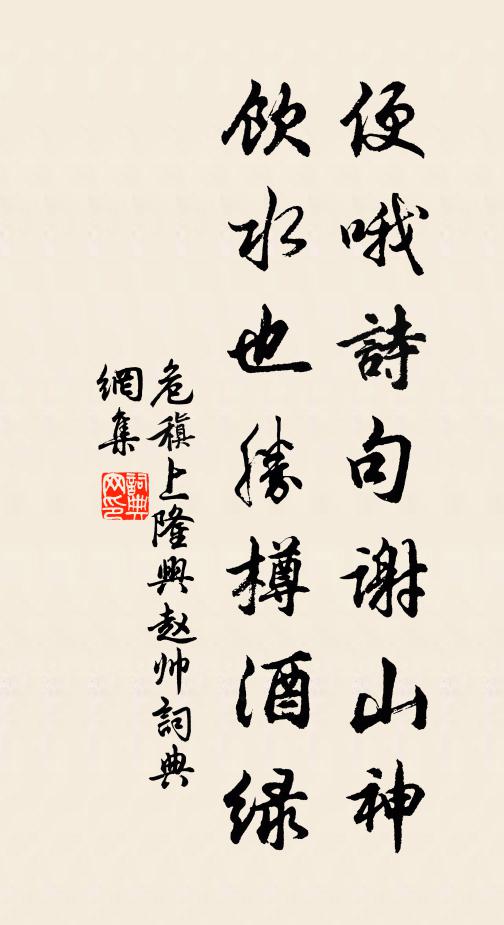 便哦詩句谢山神
飲水也勝樽酒绿
危稹上隆興赵帅詞典
網集
詞典网印